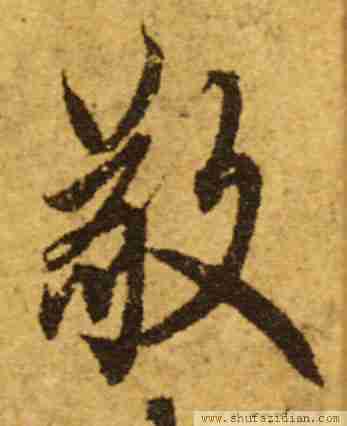 敬
www.shufazidian.com